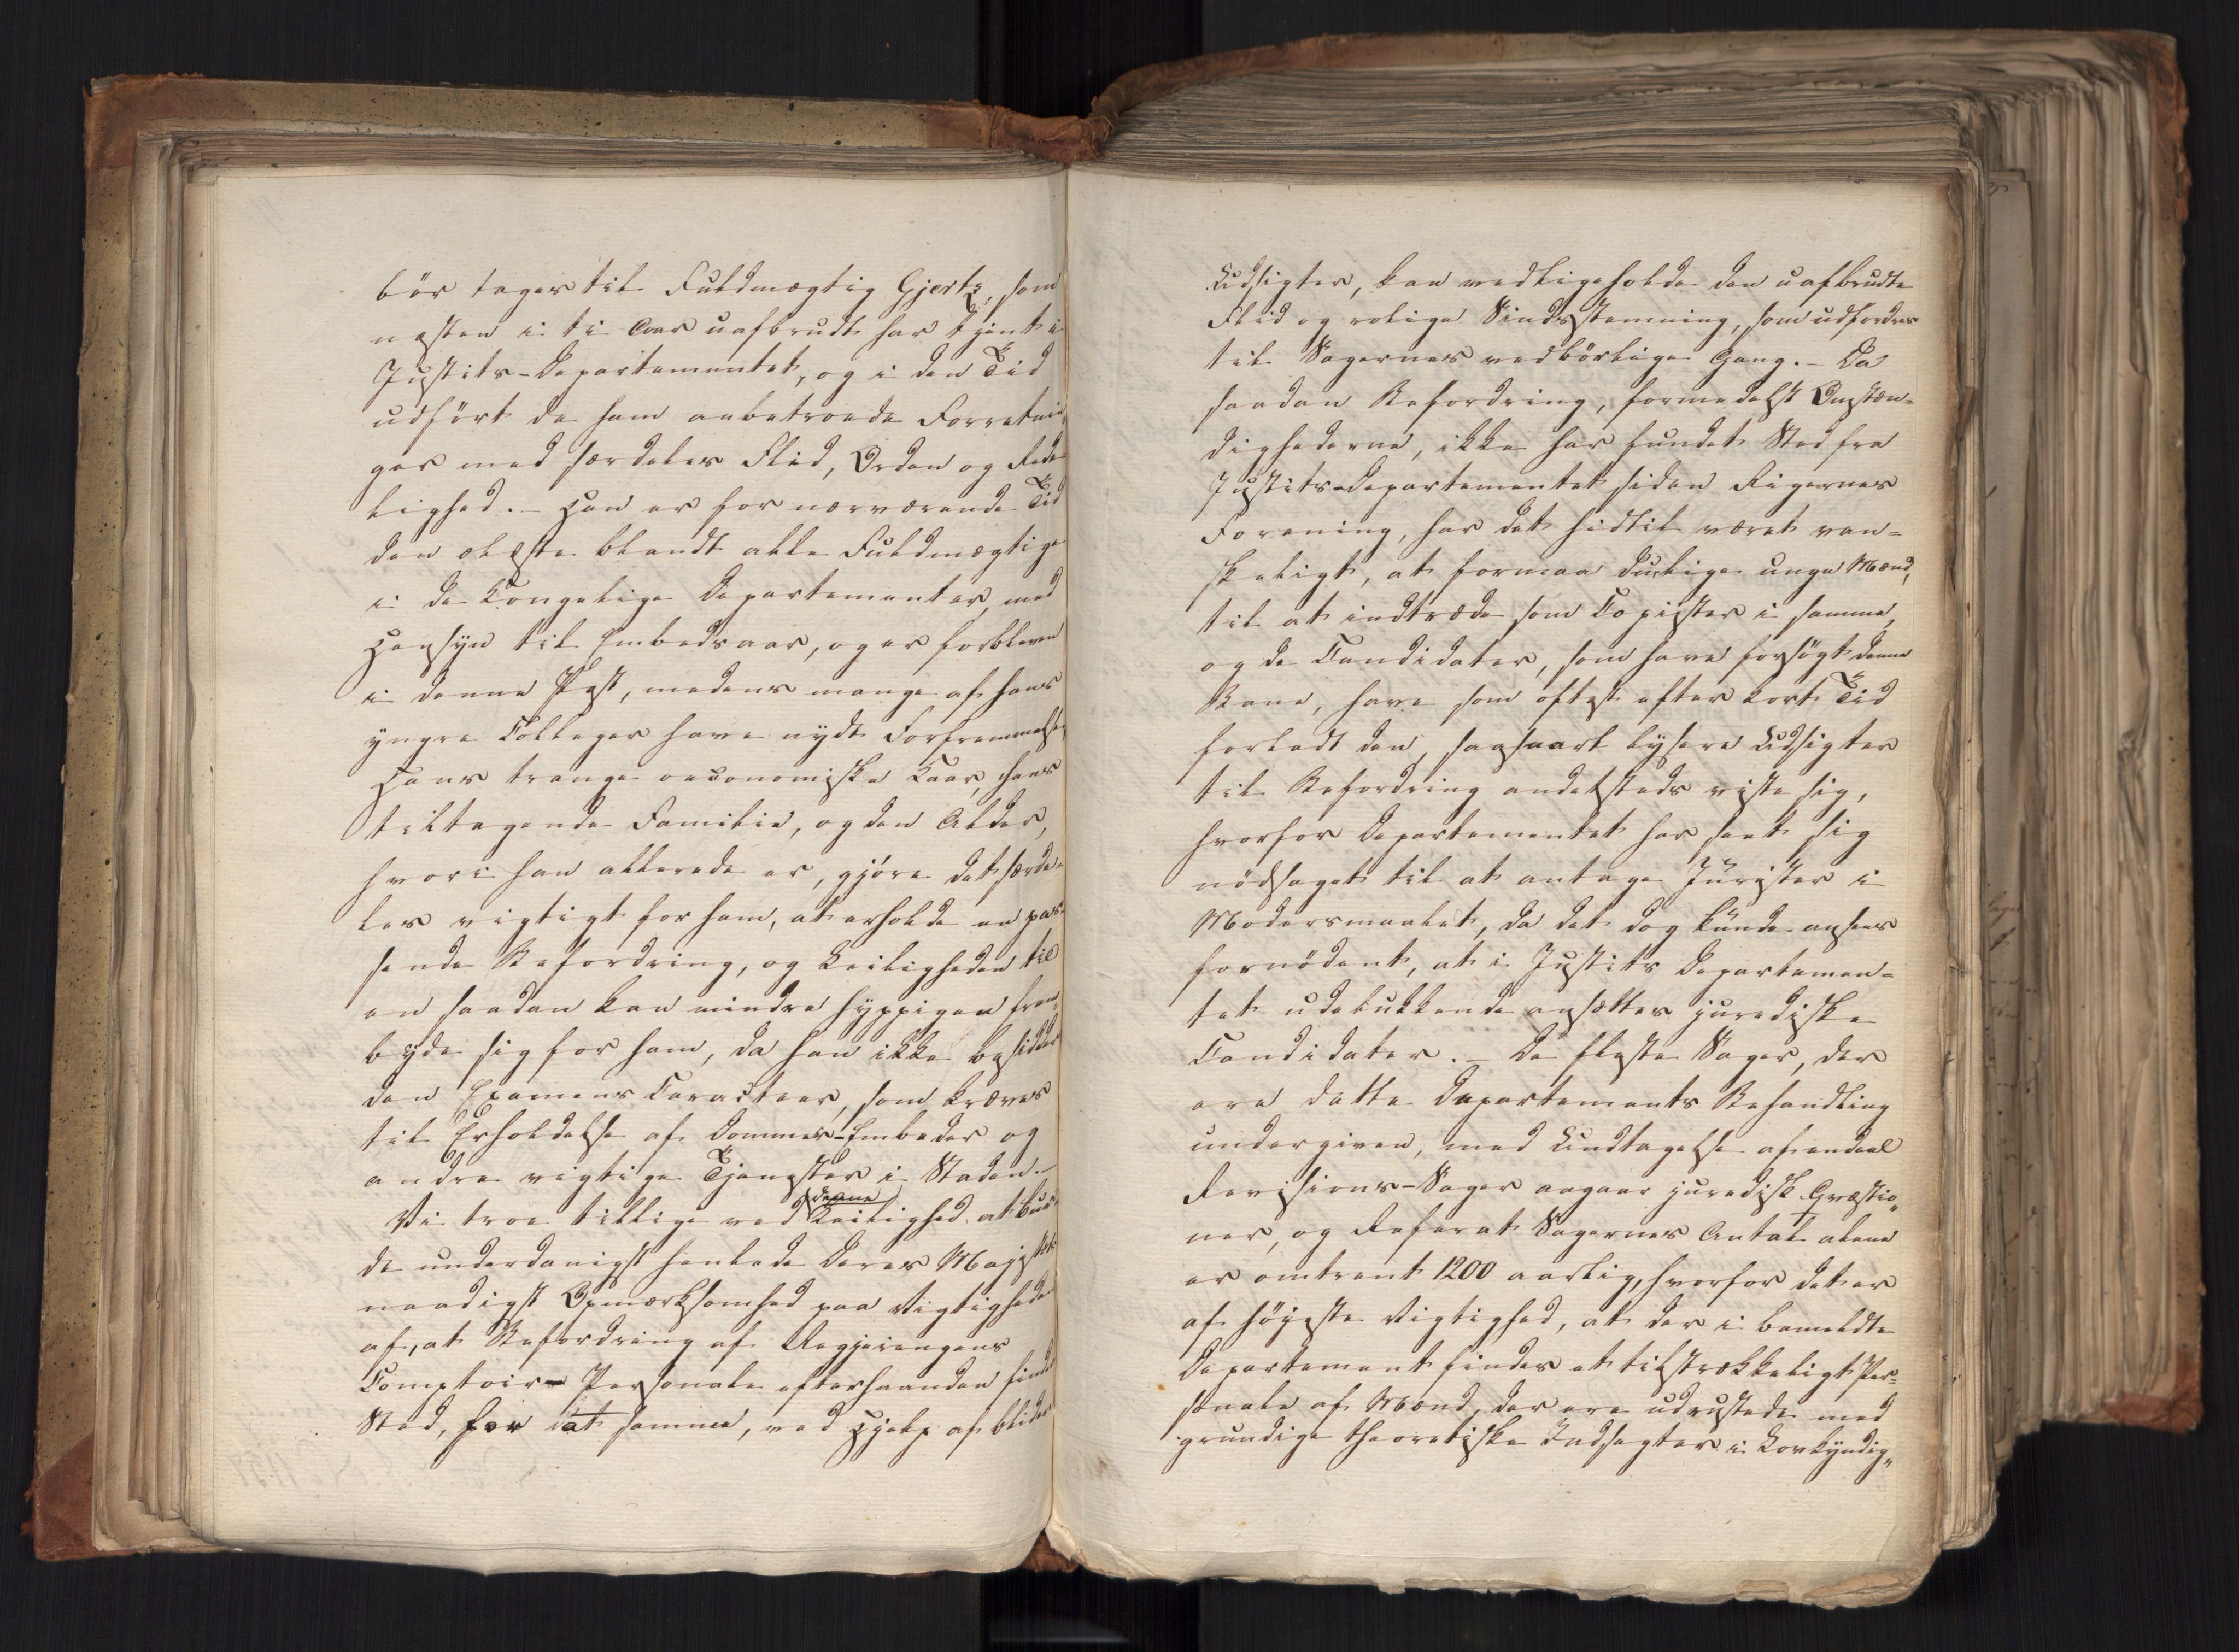 bör tages til Fuldmægtig Gjertz, som
næsten i ti Aar uafbrudt har tjent i
Justits-Departementet, og i den Tid
udført de ham anbetroede Forretnin,,
ger med særdeles Flid, Orden og Rede-
lighed. – Han er for nærværende Tid
den ælste blandt alle Fuldmægtige
i de Kongelige Departementer, med
Hensyn til Embedsaar, og er forbleven
i denne Post, medens mange af hans
yngre Colleger have nydt Forfremmelse,
Hans trange oeconomiske Kaar, hans
tiltagende Familie, og den Alder,
hvori han allerede er, gjöre det særde-
les vigtigt for ham, at erholde en pas-
sende Befordring, og Leiligheden til
en saadan kan mindre hyppigen frem,,
byde sig for ham, da han ikke besidder
den Examens Caracteer, som kræves
til Erholdelse af Dommer-Embeder og
andre vigtige Tjenester i Staden. –
Vi troe tillige ved denne Leilighed at bur-
de underdanigst henlede Deres Majestæts
naadigst Opmærksomhed paa Vigtigheden
af, at Befordring af Regjeringens
Comptoir-Personale efterhaanden finder
Sted, for at samme, ved Hjelp af blidere
Udsigter, kan vedligeholde den uafbrudte
Flid og rolige Sindsstemning, som udfordres
til Sagernes vedbörlige Gang. – Da
saadan Befordring, formedelst Omstæn-
dighederne, ikke har fundet Sted fra
Justits-Departementet siden Rigernes
Forening, har det hidtil været van-
skeligt, at formaa duelige unge Mænd,
til at indtræde som Copister i samme,
og de Candidater, som have forsögt denne
Bane, have som oftest efter kort Tid
forladt den, saasnart lysere Udsigter
til Befordring andetsteds viste sig,
hvorfor Departementet har seet sig
nödsaget til at antage Jurister i
Modersmaalet, da det dog kunde ansees
fornödent, at i Justits Departemen-
tet udelukkende ansættes juridiske
Candidater. – De fleste Sager, der
ere dette Departements Behandling
undergiven, med Undtagelse af endeel
Revisions-Sager angaar juridisk Qvæstio,,
ner, og Referat Sagernes Antal alene
er omtrent 1200 aarlig, hvorfor det er
af höyeste Vigtighed, at der i bemeldte
Departement findes et tilstrækkeligt Per-
sonale af Mænd, der ere udrustede med
grundige theoretiske Indsigter i Lovkyndig,,